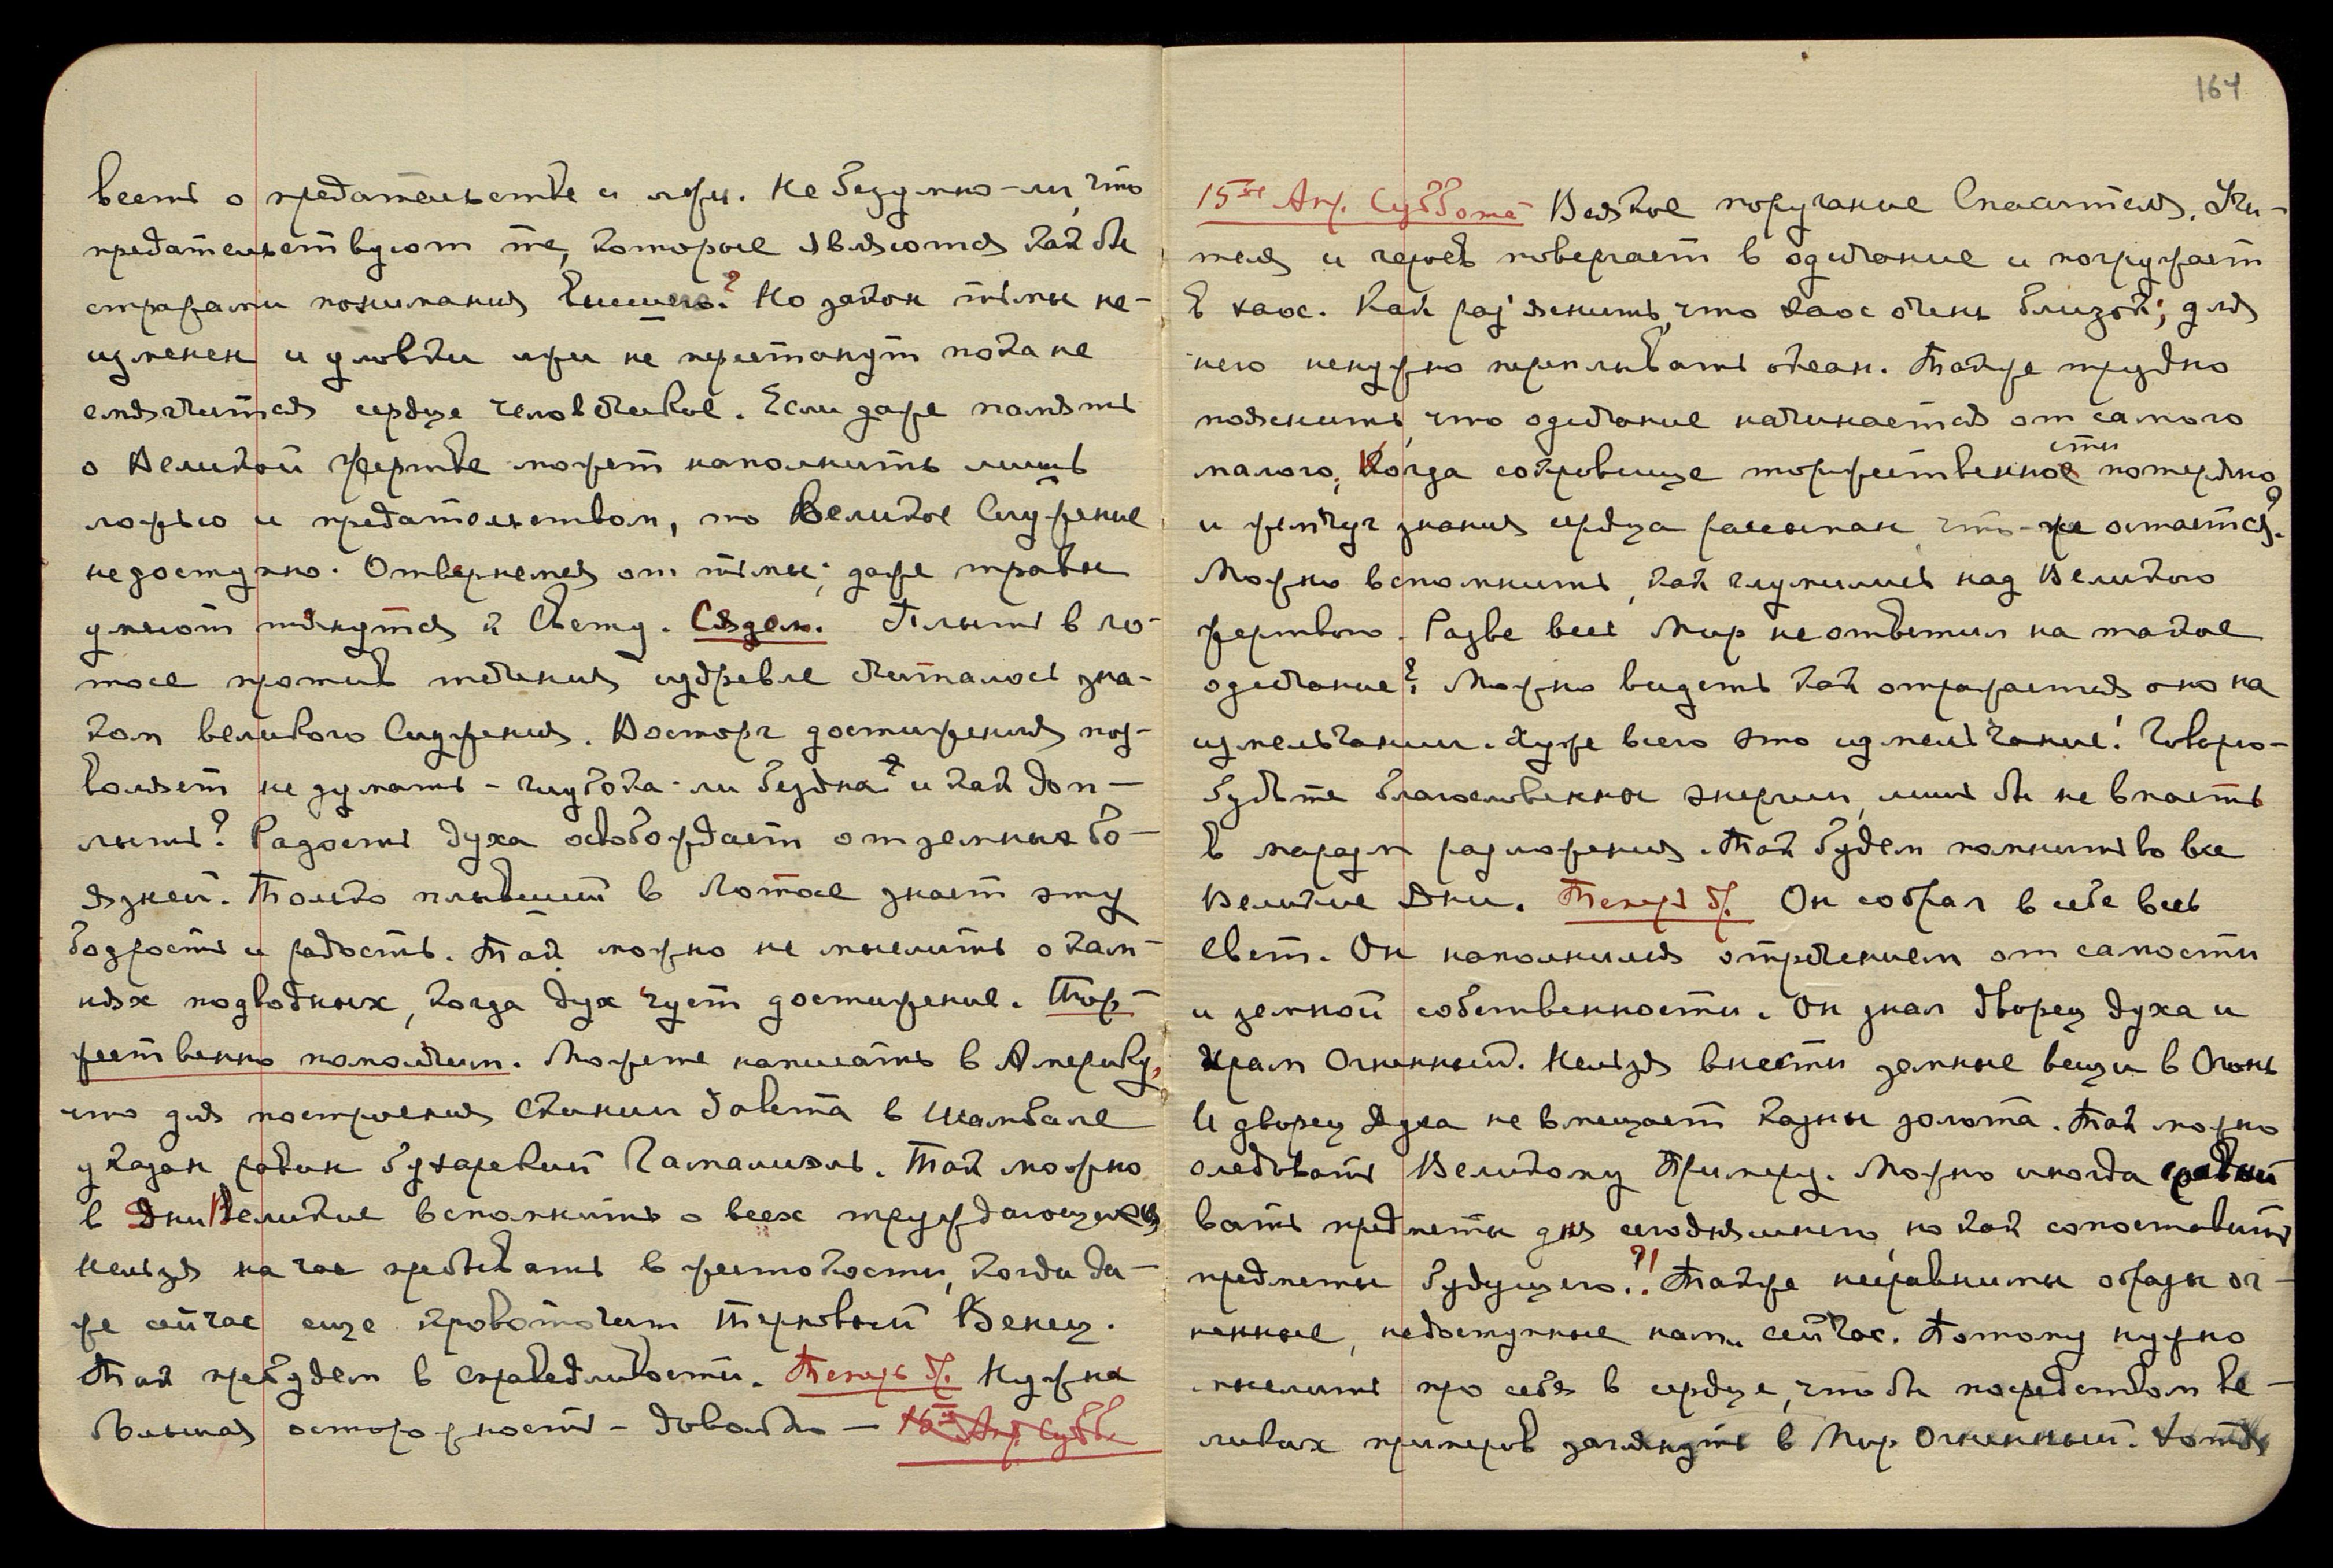 весть о предательстве и лжи. Не безумно-ли, что
предательствуют те, которые являются как бы
стражами понимания Высшего? Но закон тьмы не-
изменен и уловки лжи не престанут пока не
смягчится сердце человеческое. Если даже память
о Великой Жертве может наполнить лишь
ложью и предательством, то Великое Служение
недоступно. Отвернемся от тьмы; даже травы
умеют тянуться к Свету. Сядем. Плыть в ло-
тосе против течения издревле считалось зна-
ком великого Служения. Восторг достижения поз-
воляет не думать - глубока-ли бездна? и как доп-
лыть? Радость духа освобождает от земных бо-
язней. Только плывший в Лотосе знает эту
бодрость и радость. Так можно не мыслить о кам-
нях подводных, когда дух чует достижение. Тор-
жественно помолчим. Можете написать в Америку,
что для построения Скинии Завета в Шамбале
указан равин бухарский Гамалиэль. Так можно
в Дни Великие вспомнить о всех труждающихся
Нельзя на час пребывать в жестокости, когда да-
же сейчас еще кровоточит терновый Венец.
Так пребудем в справедливости. Теперь др. Нужна
большая осторожность - довольно - 15ое Апр. Субб.
164
15ое Апр. Суббота Всякое поругание Спасителя, Учи-
теля и героев повергает в одичание и погружает
в хаос. Как разъяснить, что хаос очень близок; для
него ненужно переплывать океан. Также трудно
пояснить, что одичание начинается от самого
малого, Когда сокровище торжественности потеряно
и жемчуг знания сердца рассыпан, что-же остается?
Можно вспомнить, как глумились над Великою
Жертвою. Разве весь Мир не ответил на такое
одичание? Можно видеть как отражается оно на
измельчании. Хуже всего это измельчание! Говорю-
будьте благословенны энергии, лишь бы не впасть
в маразм разложения. Так будем помнить во все
Великие Дни. Теперь др. Он собрал в себе весь
свет. Он наполнился отречением от самости
и земной собственности. Он знал дворец духа и
Храм Огненный. Нельзя внести земные вещи в Огонь
И дворец Духа не вмещает казны золота. Так можно
следовать Великому Примеру. Можно иногда сравни
вать предметы дня сегодняшнего, но как сопоставить
предметы будущего?! Также несравнимы образы ог-
ненные, недоступные нам сейчас. Потому нужно
мыслить про себя в сердце, чтобы посредством ве-
ликих примеров заглянуть в Мир Огненный. Хотя